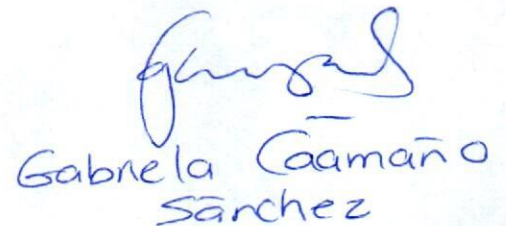 Gabriela Caamaño
Sánchez